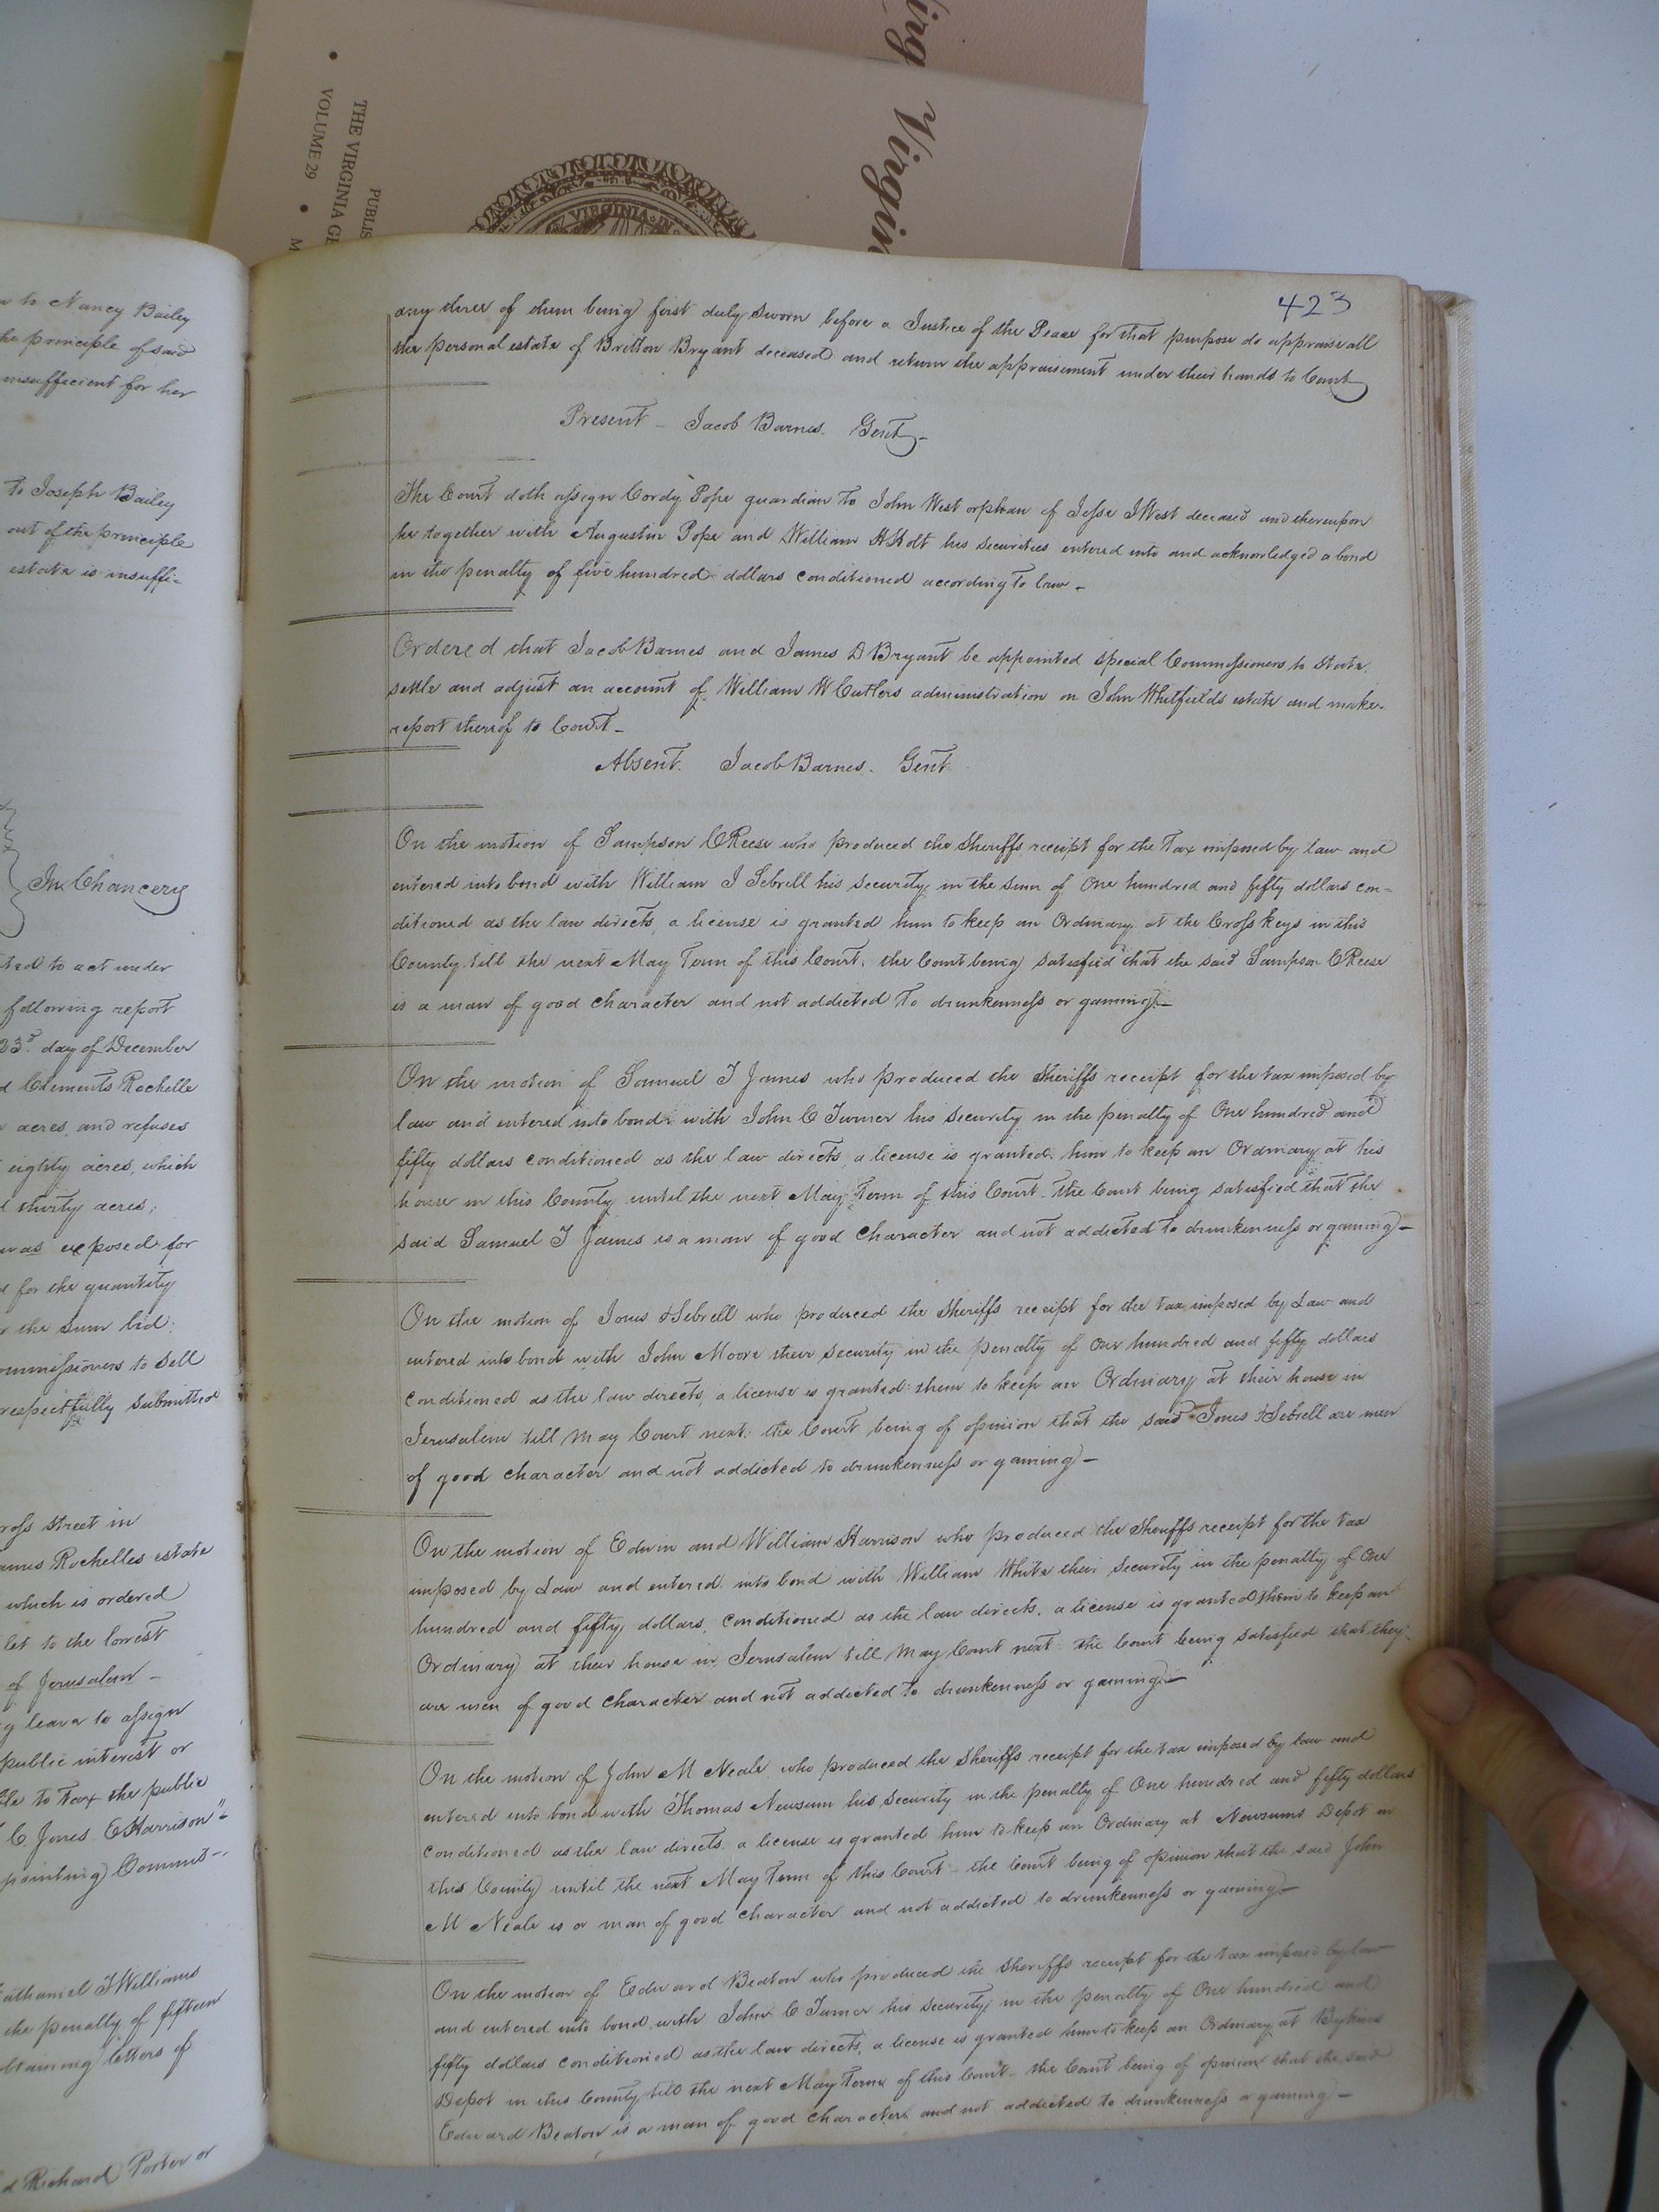 Virg Virgin
PUBLIS
THE VIRGINIA GE
• VOLUME 29 • M
VIRGINIA
to Nancy Bailey
the principle of said
insufficient for her
To Joseph Bailey
out of the principle
estate is insuffi-
In Chancery
to act under
following report
23d. day of December
Clements Rochelle
acres, and refuses
eighty acres, which
thirty acres;
was exposed for
for the quantity
the sum bid:
ommissioners to sell
respectfully submitted
ross street in
ames Rochelles estate
which is ordered
let to the lowest
of Jerusalem -
leave to assign
public interest or
to tax the public
C. Jones C Harrison"-
pointing Commis-
athaniel T Williams
the penalty of fifteen
btaining letters of
d Richard Porter or
423
any three of them being first duly sworn before a Justice of the Peace for that purpose do appraise all
the personal estate of Britton Bryant deceased and return the appraisement under their hands to Court
Present - Jacob Barnes. Gent -
The Court doth assign Cordy Pope guardian to John West orphan of Jesse J West deceased and thereupon
he together with Augustin Pope and William H Holt his securities entered into and acknowledged a bond
in the penalty of five hundred dollars conditioned according to law -
Ordered that Jacob Barnes and James D Bryant be appointed special Commissioners to state,
settle and adjust an account of William W Cutlers administration on John Whitfields estate and make
report thereof to Court -
Absent. Jacob Barnes. Gent
On the motion of Sampson C Reese who produced the Sheriffs receipt for the Tax imposed by law and
entered into bond with William J Sebrell his security in the sum of One hundred and fifty dollars con-
ditioned as the law directs, a license is granted him to keep an Ordinary at the Cross keys in this
County till the next May Term of this Court, the Court being satisfied that the said Sampson C Reese
is a man of good character and not addicted to drunkenness or gaming -
On the motion of Samuel T James who produced the Sheriffs receipt for the tax imposed by
law and entered into bond with John C Turner his security in the penalty of One hundred and
fifty dollars conditioned as the law directs, a license is granted him to keep an Ordinary at his
house in this County until the next May Term of this Court. The Court being satisfied that the
said Samuel T James is a man of good character and not addicted to drunkenness or gaming -
On the motion of Jones & Sebrell who produced the Sheriffs receipt for the tax imposed by Law and
entered into bond with John Moore their security in the penalty of One hundred and fifty dollars
conditioned as the law directs, a license is granted them to keep an Ordinary at their house in
Jerusalem till May Court next. the Court being of opinion that the said Jones & Sebrell are men
of good character and not addicted to drunkenness or gaming -
On the motion of Edwin and William Harrison who produced the Sheriffs receipt for the tax
imposed by Law and entered into bond with William White their security in the penalty of One
hundred and fifty dollars, conditioned as the law directs, a license is granted them to keep an
Ordinary at their house in Jerusalem till May Court next. the Court being satisfied that they
are men of good character and not addicted to drunkenness or gaming -
On the motion of John M Neale who produced the Sheriffs receipt for the tax imposed by law and
entered into bond with Thomas Newsum his security in the penalty of One hundred and fifty dollars
conditioned as the law directs. a license is granted him to keep an Ordinary at Newsums Depot in
this County until the next May Term of this Court - the Court being of opinion that the said John
M Neale is or man of good character and not addicted to drunkenness or gaming -
On the motion of Edward Beaton who produced the Sheriffs receipt for the tax imposed by law
and entered into bond with John C Turner his security in the penalty of One hundred and
fifty dollars conditioned as the law directs, a license is granted him to keep an Ordinary at
Depot in this County till the next May Term of this Court - the Court being of opinion that the said
Edward Beaton is a man of good character and not addicted to drunkenness or gaming -